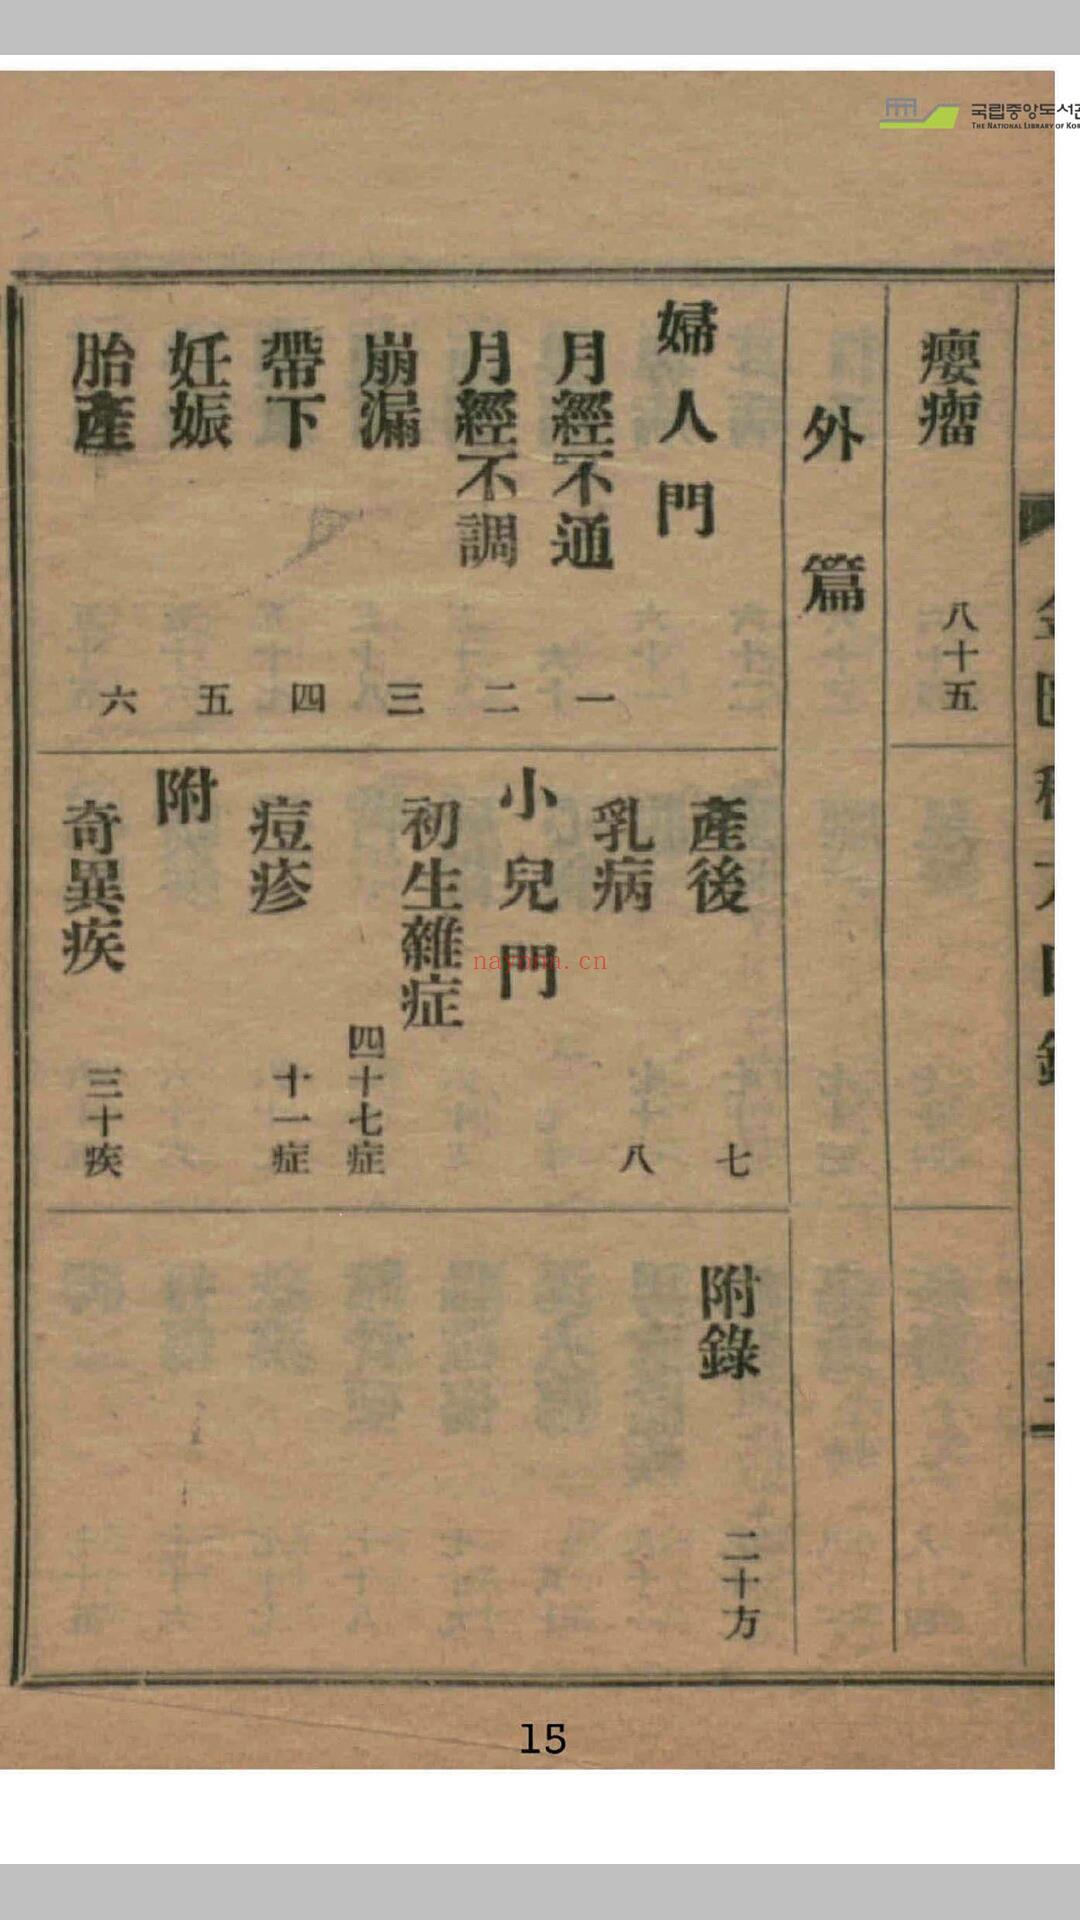 국립중앙도서관
THE NATIONAL LIBRARY OF KOR
癭瘤 八十五
外篇
婦人門
月經不通 一
月經不調 二
崩漏 三
帶下 四
妊娠 五
胎產 六
產後 七
乳病 八
小兒門
初生雜症 四十七症
痘疹 十一症
附
奇異疾 三十疾
附錄 二十方
nayona.cn
15